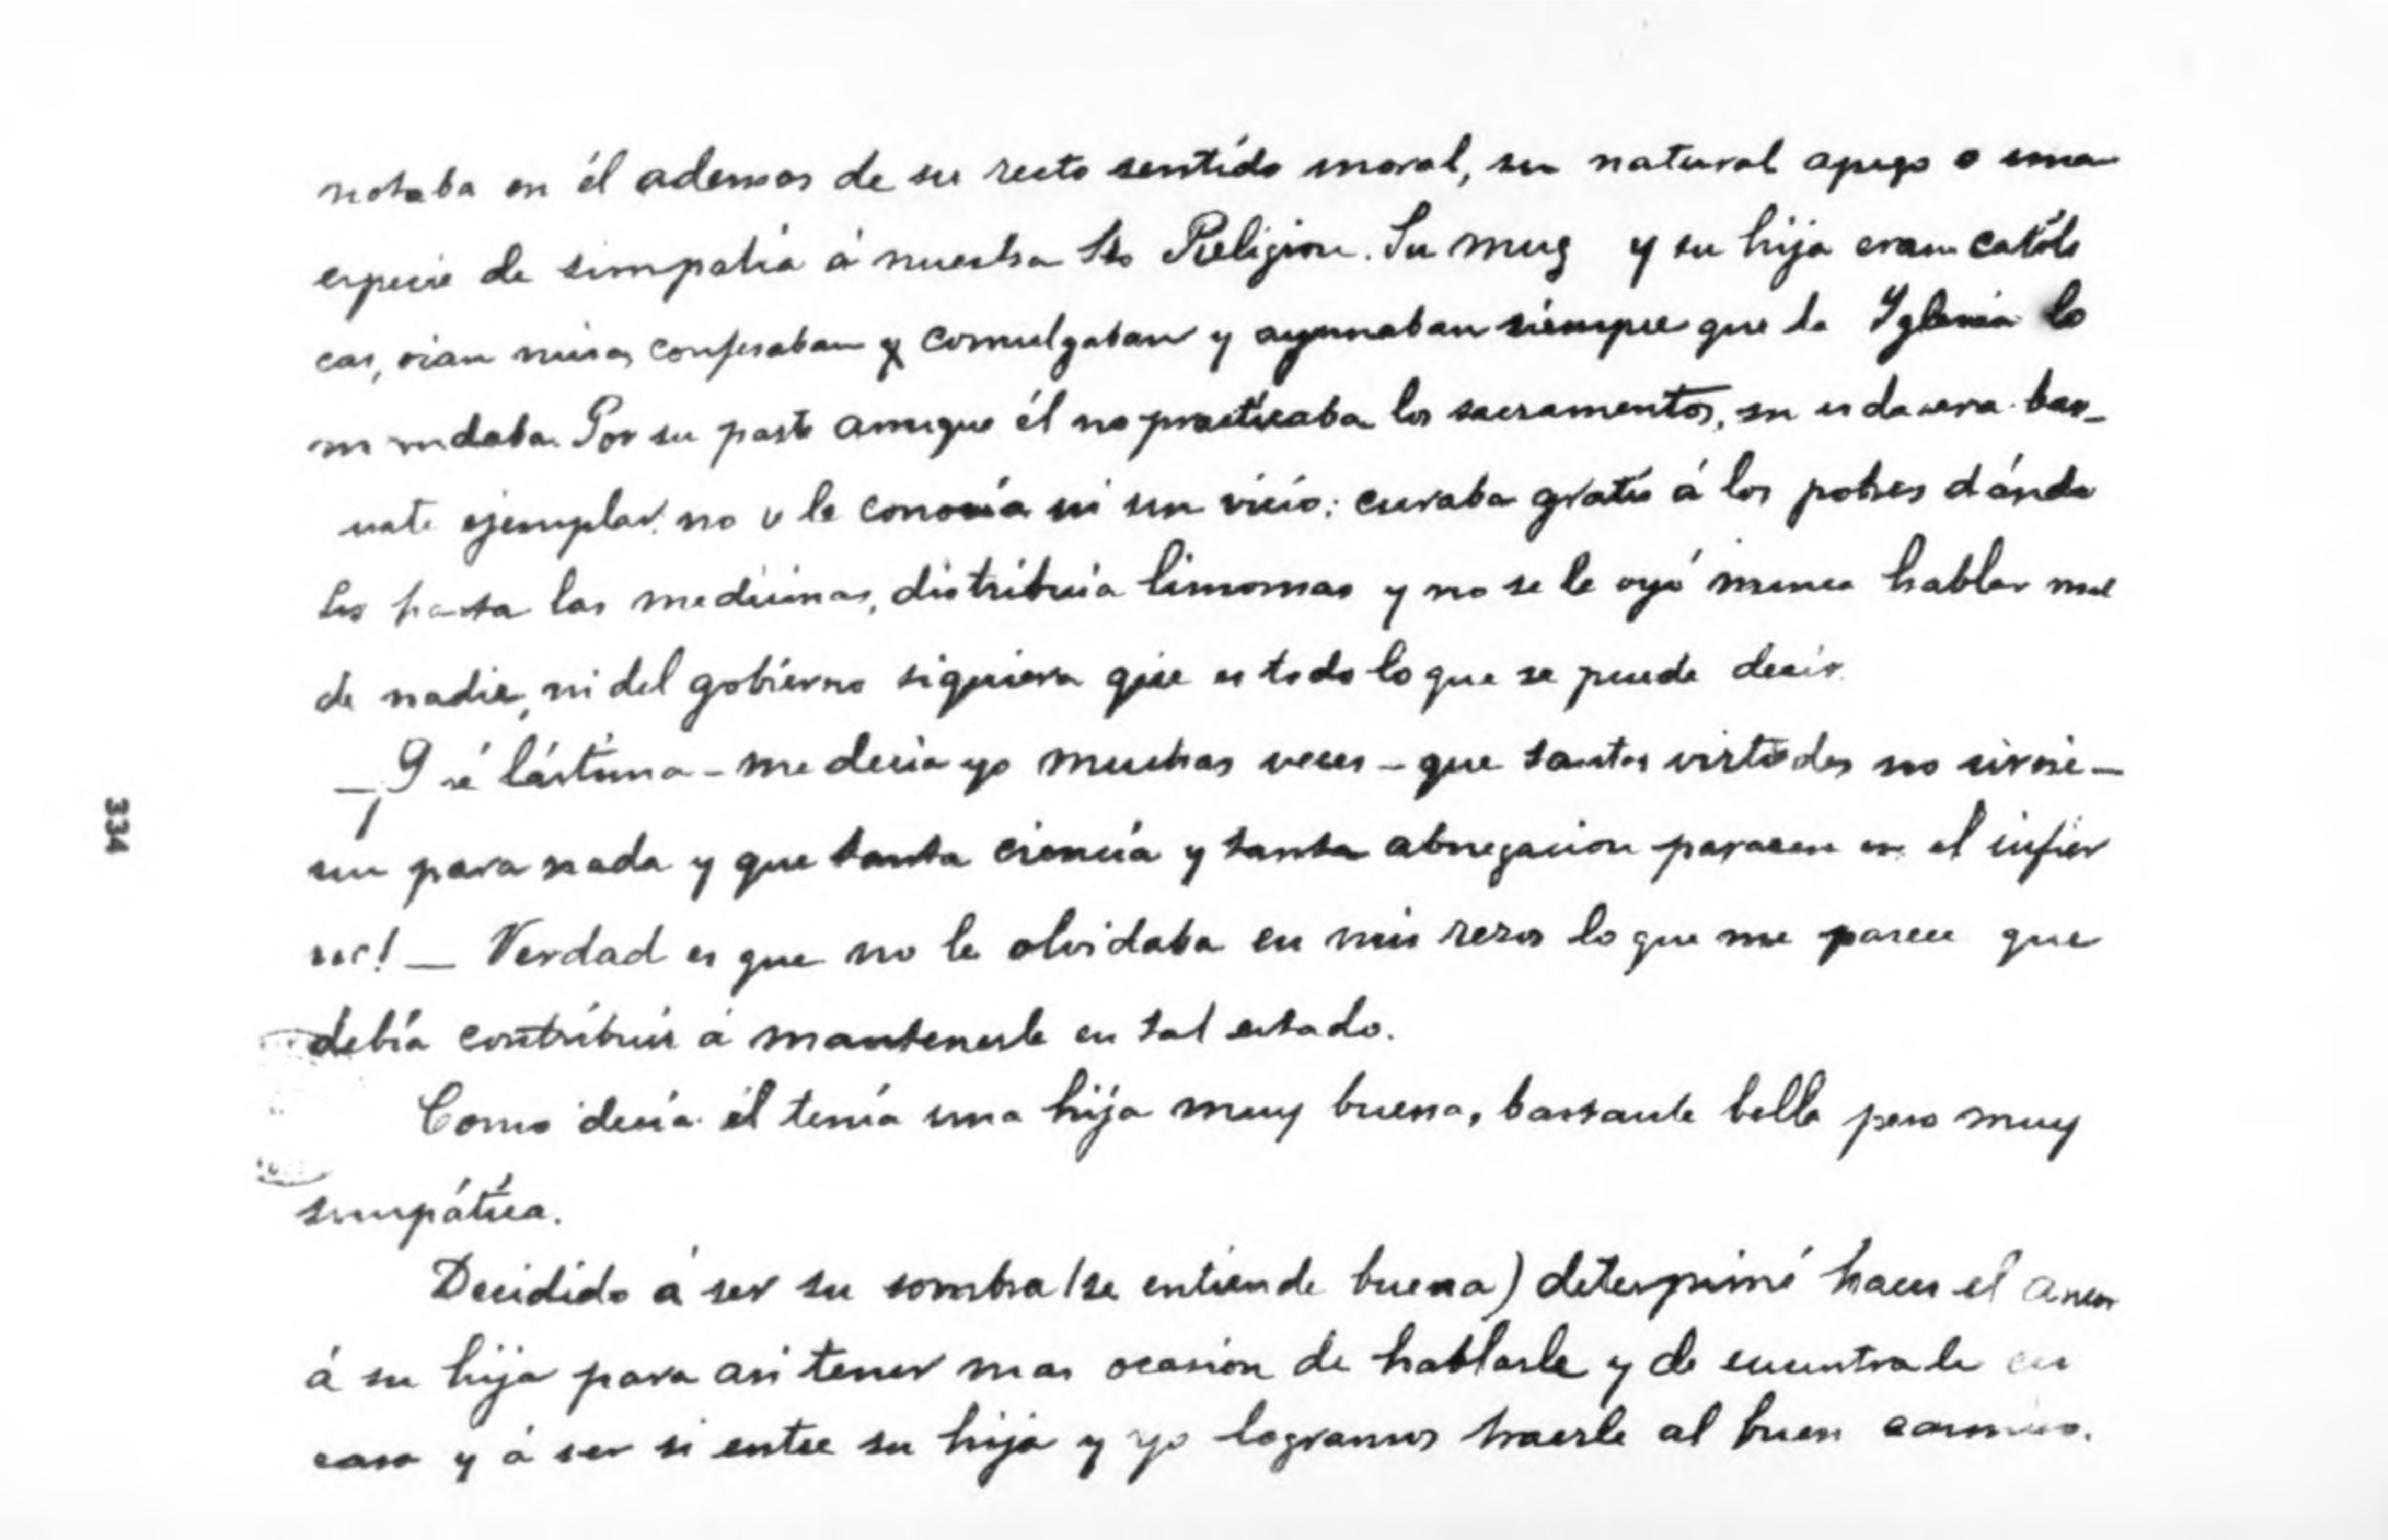 notaba en él ademas de su recto sentido moral, su natural apego o una
especie de simpatia á nuestra Sta Religion. Su mug y su hija eran catoli
cas, oian misa, confesaban y comulgaban y ayunaban siempre que la Iglesia lo
mandaba. Por su parte aunque él no practicaba los sacramentos, su era bas-
ejemplar, no le conocía ni un vicio: curaba gratis á los pobres dándo
les hasta las medicinas, distribuia limosnas y no se le oyó nunca hablar mal
de nadie, ni del gobierno siquiera que es todo lo que se puede decir.
—¡Qué lástima - me decia yo muchas veces - que tantas virtudes no sirvie-
sen para nada y que tanta ciencia y tanta abnegacion parasen en el infier
no! — Verdad es que no le olvidaba en mis rezos lo que me parece que
debía contribuir á mantenerle en tal estado.
Como decía él tenía una hija muy buena, bastante bella pero muy
simpática.
Decidido á ser su sombra (se entiende buena) determiné hacer el amor
á su hija para asi tener mas ocasion de hablarle y de encontrarle en
casa y á ver si entre su hija y yo logramos traerle al buen camino.
334